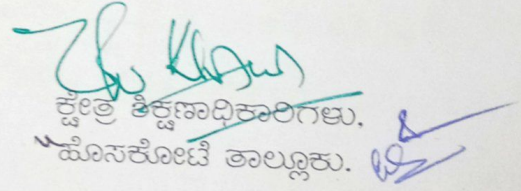 ಕ್ಷೇತ್ರ ಶಿಕ್ಷಣಾಧಿಕಾರಿಗಳು,
ಹೊಸಕೋಟೆ ತಾಲ್ಲೂಕು.